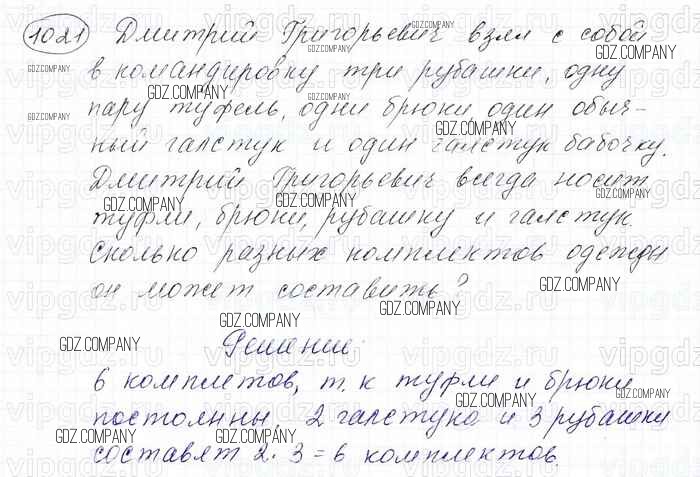 1021 Дмитрий Григорьевич взял с собой
в командировку три рубашки, одну
пару туфель, одни брюки один обыч-
ный галстук и один галстук бабочку.
Дмитрий Григорьевич всегда носит
туфли, брюки, рубашку и галстук.
Сколько разных комплектов одежды
он может составить?
Решение:
6 комплетов, т. к туфли и брюки
постоянны, 2 галстука и 3 рубашки
составят 2·3=6 комплектов.